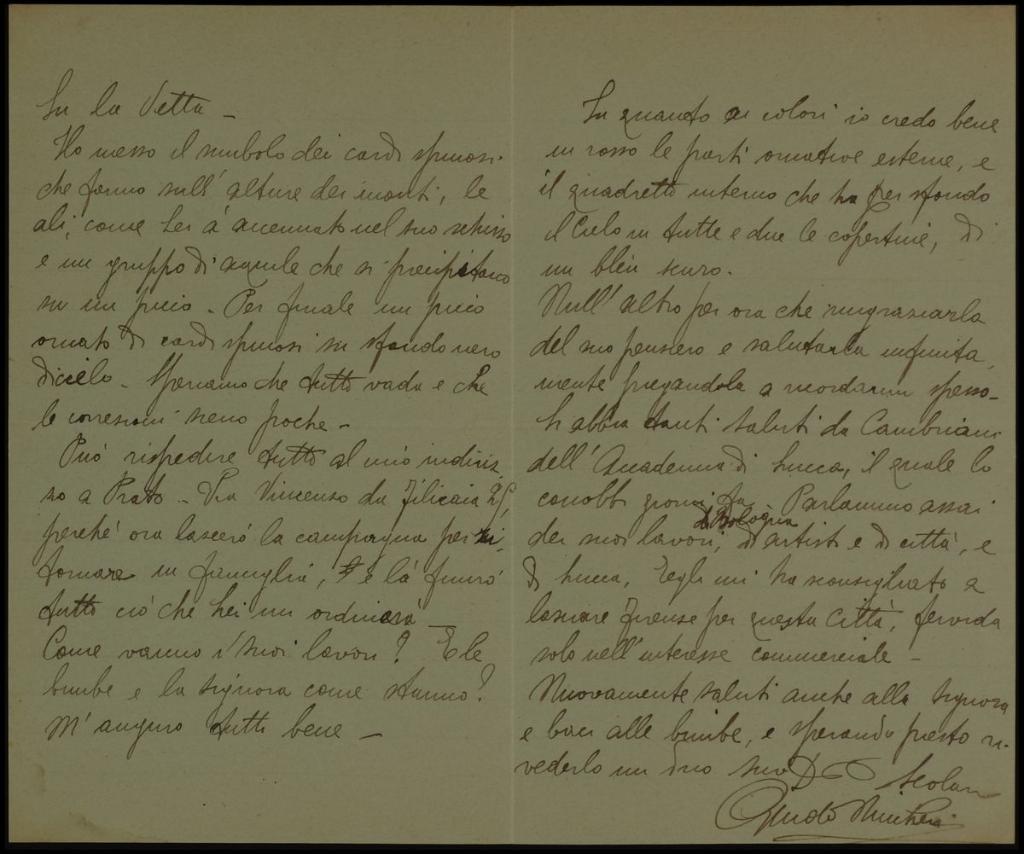 Su la Vetta -
Ho messo il simbolo dei cardi spinosi
che fanno sull' alture dei monti, le
ali, come Lei à accennato nel suo schizzo
e un gruppo di aquile che si precipitano
su un picco - Per finale un picco
ornato di cardi spinosi su sfondo nero
di cielo - Speriamo che tutto vada e che
le correzioni sieno poche -
Può rispedire tutto al mio indiriz,
zo a Prato - Via Vincenzo da Filicaia
perché ora lascerò la campagna per ri,
tornare in famiglia, e là finirò
tutto ciò che Lei mi ordinerà -
Come vanno i suoi lavori? E le
bimbe e la signora come stanno?
M' auguro tutti bene -
In quanto ai colori io credo bene
in rosso le parti ornative esterne, e
il quadretto interno che ha per sfondo
il Cielo in tutte e due le copertine, di
un bleu scuro.
Null' altro per ora che ringraziarla
del suo pensiero e salutarla infinita,
mente pregandola a ricordarmi spesso -
Si abbia tanti saluti da Cambriani
dell' Accademia di Lucca, il quale lo
conobbi giorni fa. Parlammo assai
di Bologna
dei suoi lavori, di artisti e di città, e
di Lucca, Egli mi ha sconsigliato a
lasciare Firenze per questa Città, fervida
solo nell' interesse commerciale -
Nuovamente saluti anche alla Signora
e baci alle bimbe, e sperando presto ri-
vederlo mi dico suo Scolaro
Guido